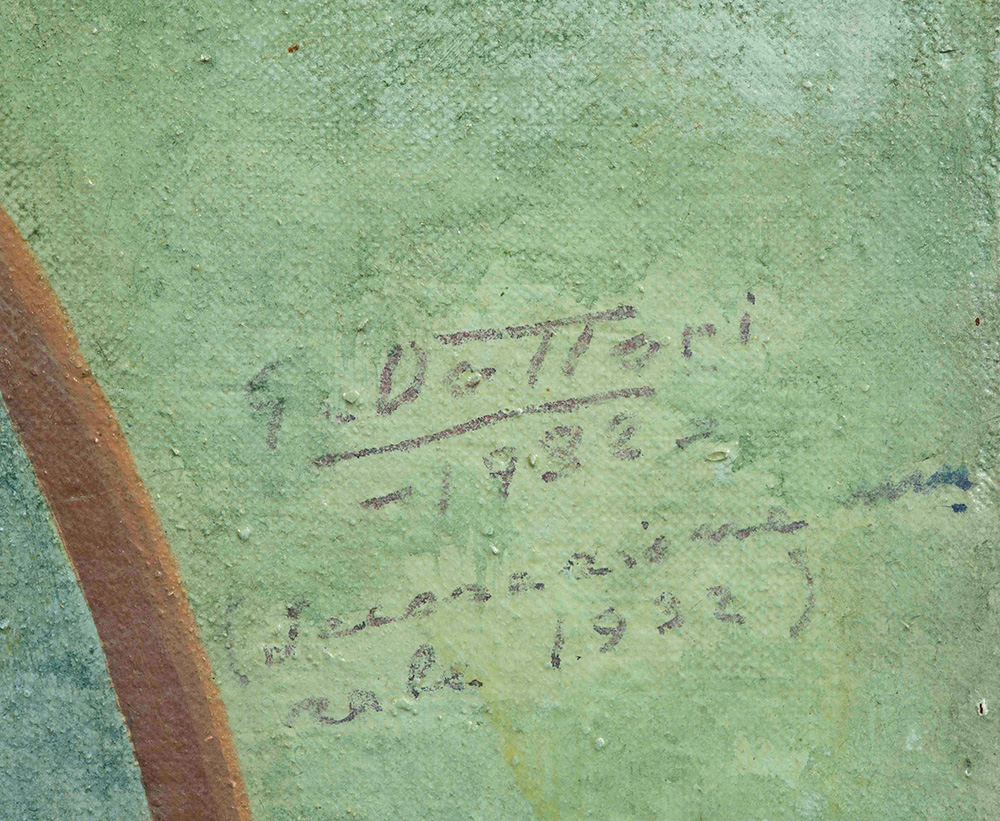 G. Dottori
- 1932 -
(decorazione mu
rale 1932)